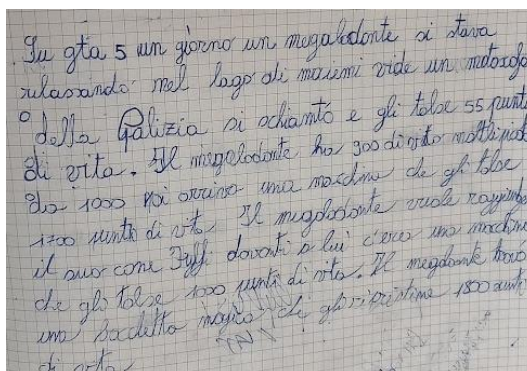 Su gta 5 un giorno un megalodonte si stava
rilassando nel lago di maiemi vide un motoscafo
della Galizia si schiantò e gli tolse 55 punti
di vita. Il megalodonte ha 300 di vita moltiplicato
da 1000 poi arriva una macchina che gli tolse
1700 punti di vita Il megalodonte vuole raggiungere
il suo cane Fuffi davanti a lui c'era una macchina
che gli tolse 100 punti di vita. Il megalodonte trovò
una bacchetta magica che gli ripristina 1800 punti
di vita